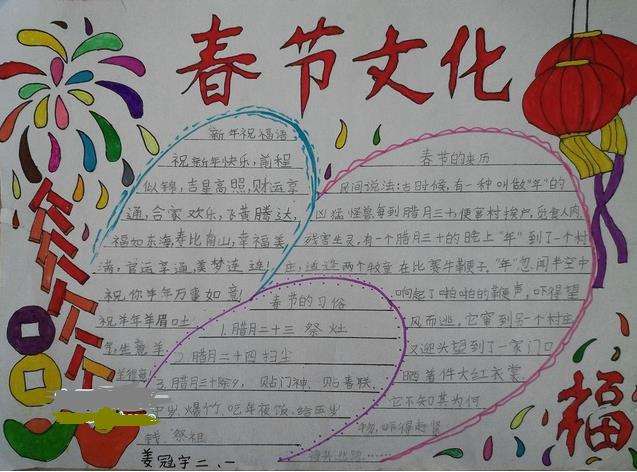 春节文化
新年祝福语:
祝新年快乐,前程
似锦,吉星高照,财运享
通,合家欢乐,飞黄腾达,
福如东海,寿比南山,幸福美
满,官运享通,美梦连连!
祝你羊年万事如意!
祝羊年羊眉吐
年,生意羊
春节的来历
民间说法:古时候,有一种叫做"年"的
凶猛怪兽,每到腊月三十,便窜村挨户,觅食人肉
残害生灵,有一个腊月三十的晚上"年"到了一个村
庄,适逢两个牧童在比赛牛鞭子。"年"忽闻半空中
响起了啪啪的鞭声,吓得望
风而逃,它窜到另一个村庄
又迎头望到了一家门口
晒着件大红衣裳
它不知其为何
物,吓得赶紧
春节的习俗
1.腊月二十三 祭灶
2.腊月二十四扫尘
3.腊月三十除夕,贴门神、贴春联、
爆竹、吃年夜饭、给压岁
钱、祭祖
福
姜冠宇二、一